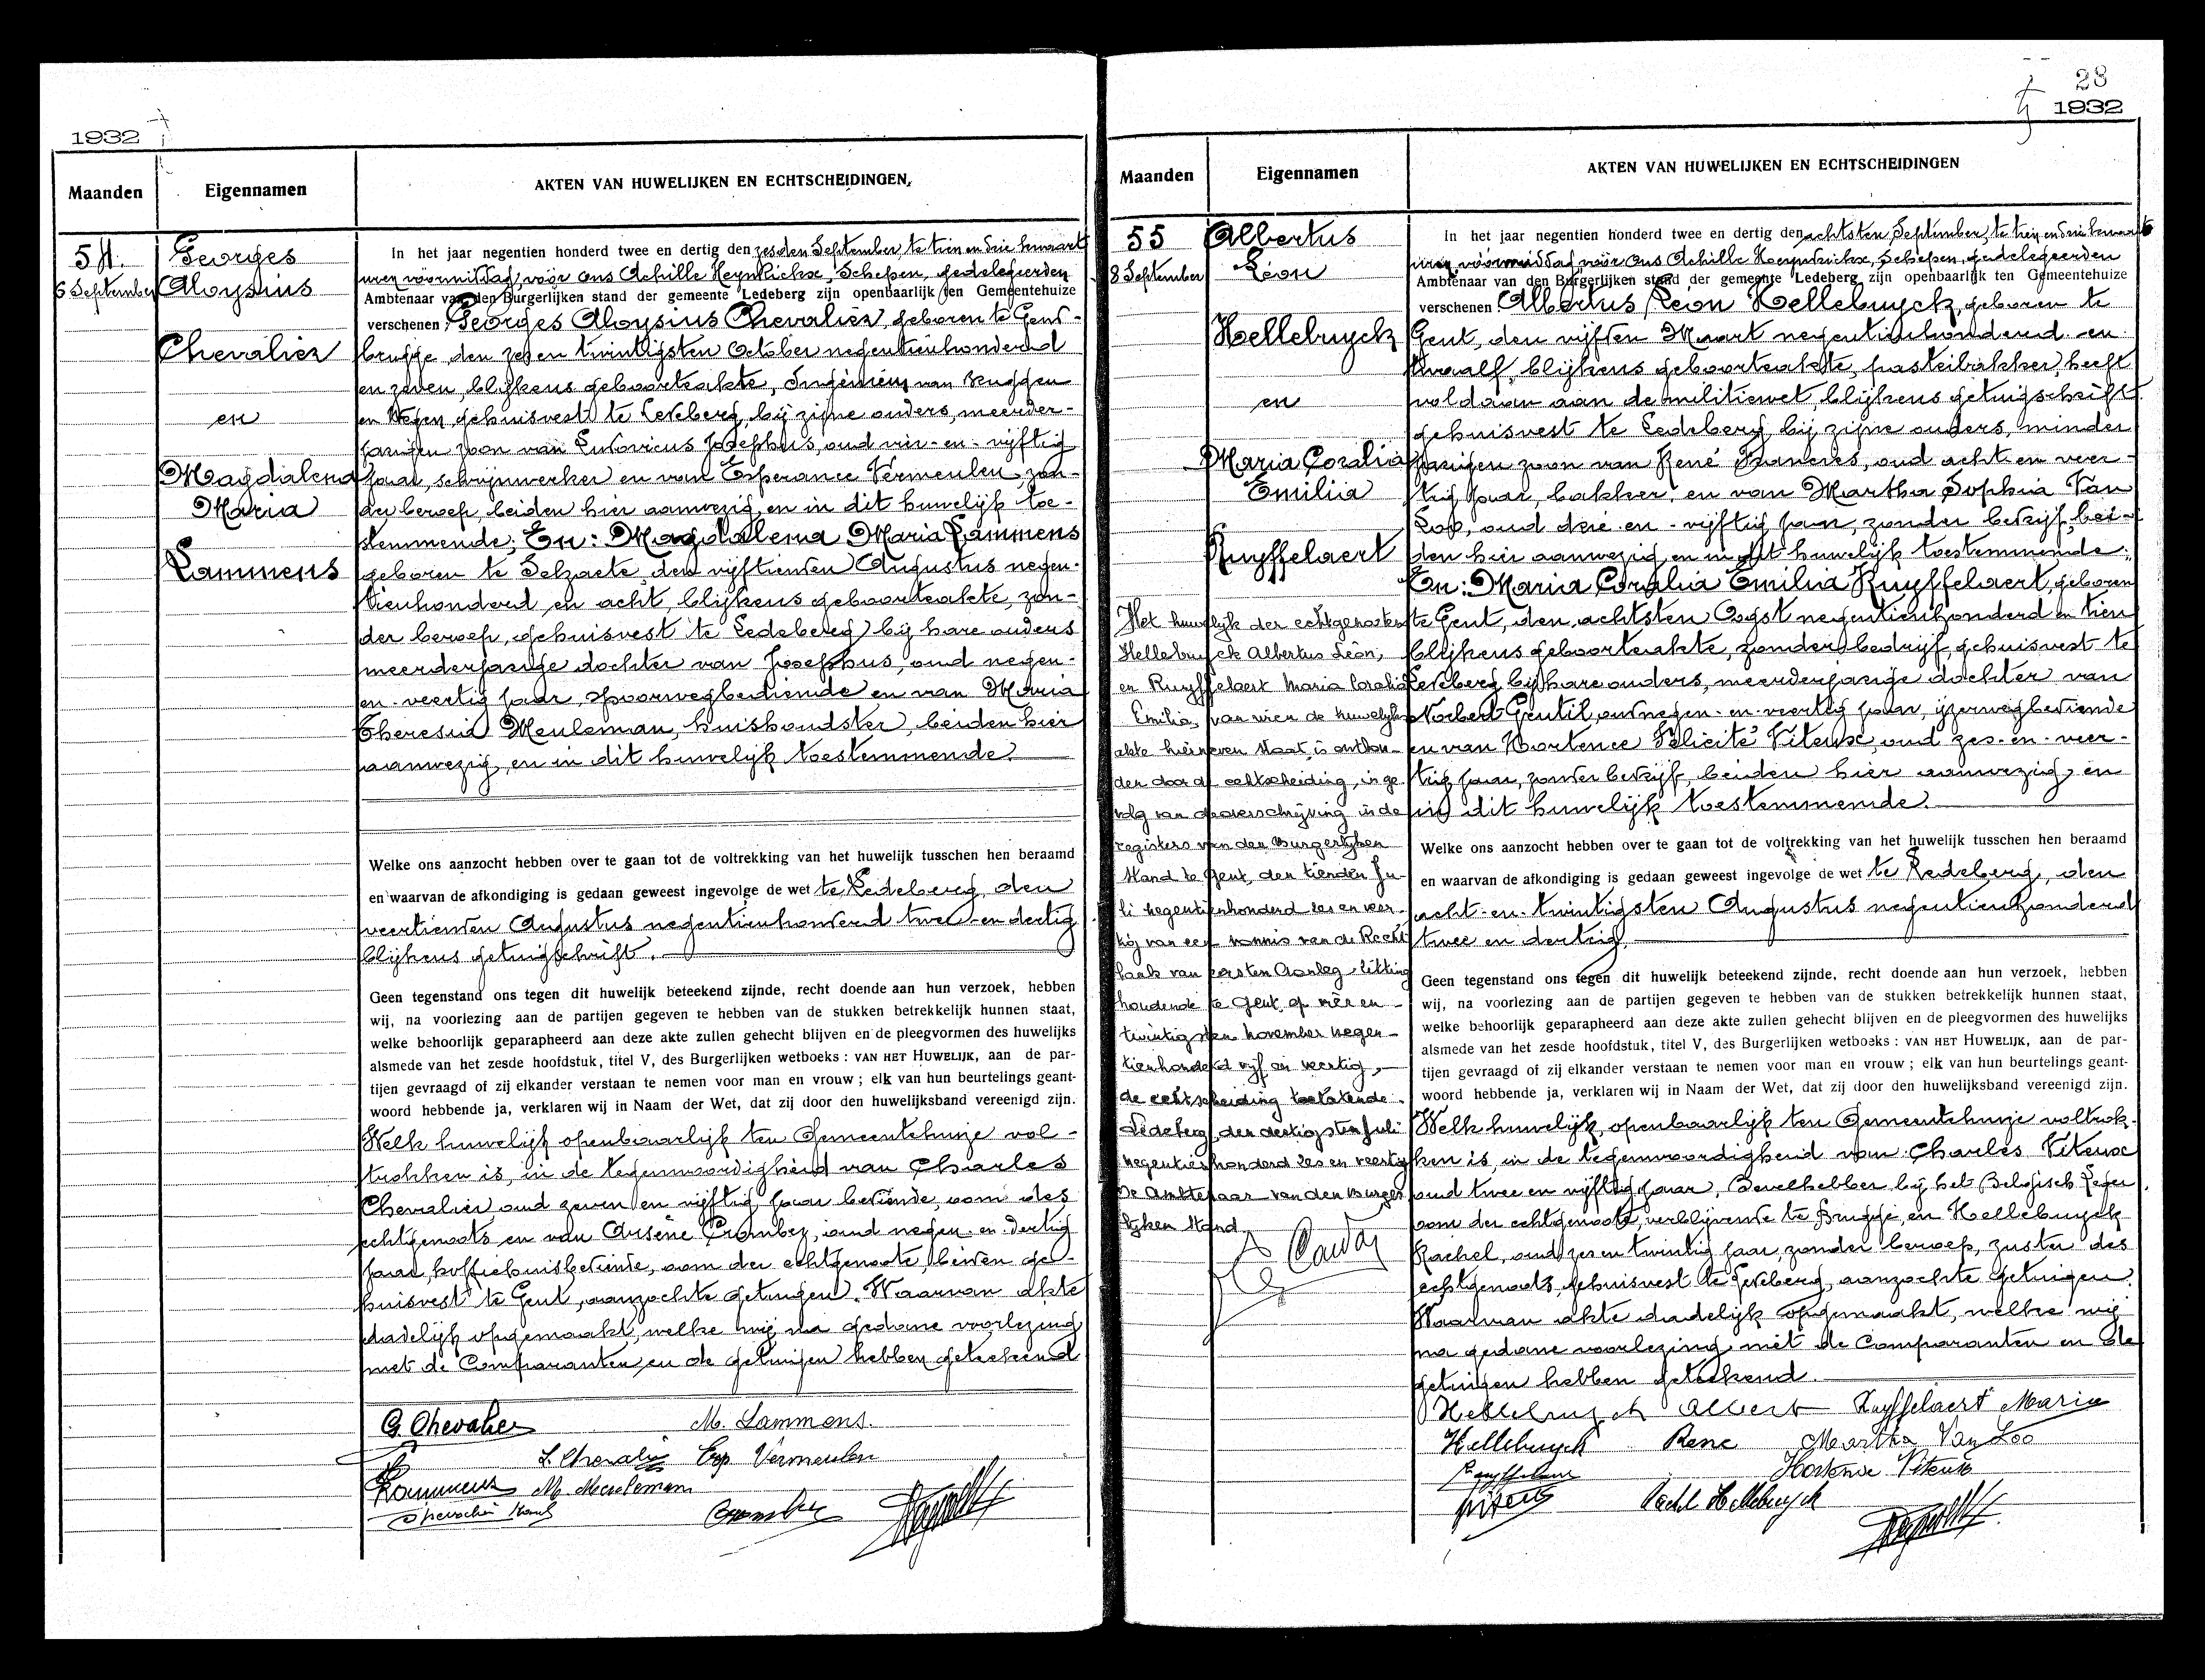 1932
Maanden
Eigennamen
AKTEN VAN HUWELIJKEN EN ECHTSCHEIDINGEN.
54.
6 September
Georges
Aloysius
Chevalier
en
Magdalena
Maria
Lammens
In het jaar negentien honderd twee en dertig den zesden September, te tien en drie kwaart
uren voormiddag, voor ons Achille Heynkickx, Schepen, gedelegeerden
Ambtenaar van den Burgerlijken stand der gemeente Ledeberg zijn openbaarlijk ten Gemeentehuize
verschenen: Georges Aloysius Chevalier, geboren te Gent-
brugge, den zes en twintigsten October negentienhonderd
en zeven, blijkens geboorteakte, Ingenieur van Bruggen
en Wegen, gehuisvest te Ledeberg, bij zijne ouders, meerder-
jarigen zoon van Ludovicus Josephus, oud vier-en-vijftig
jaar, schrijnwerker en van Esperance Vermeulen, zon-
der beroep, beiden hier aanwezig en in dit huwelijk toe-
stemmende; En: Magdalena Maria Lammens
geboren te Selzaete, den vijftienden Augustus negen-
tienhonderd en acht, blijkens geboorteakte, zon-
der beroep, gehuisvest te Ledeberg bij hare ouders
meerderjarige dochter van Josephus, oud negen-
en-veertig jaar, spoorwegbediende en van Maria
Theresia Meuleman, huishoudster, beiden hier
aanwezig en in dit huwelijk toestemmende.
Welke ons aanzocht hebben over te gaan tot de voltrekking van het huwelijk tusschen hen beraamd
en waarvan de afkondiging is gedaan geweest ingevolge de wet te Ledeberg, den
veertienden Augustus negentienhonderd twee-en-dertig
blijkens getuigschrift.
Geen tegenstand ons tegen dit huwelijk beteekend zijnde, recht doende aan hun verzoek, hebben
wij, na voorlezing aan de partijen gegeven te hebben van de stukken betrekkelijk hunnen staat,
welke behoorlijk geparapheerd aan deze akte zullen gehecht blijven en de pleegvormen des huwelijks
alsmede van het zesde hoofdstuk, titel V, des Burgerlijken wetboeks : VAN HET HUWELIJK, aan de par-
tijen gevraagd of zij elkander verstaan te nemen voor man en vrouw ; elk van hun beurtelings geant-
woord hebbende ja, verklaren wij in Naam der Wet, dat zij door den huwelijksband vereenigd zijn.
Welk huwelijk openbaarlijk ten Gemeentehuize vol-
trokken is, in de tegenwoordigheid van Charles
Chevalier, oud zeven en vijftig jaar, bediende, oom des
echtgenoots en van Arsène Crombez, oud negen-en-dertig
jaar, koffiehuisbediende, oom der echtgenoote, beiden ge-
huisvest te Gent, aanzochte getuigen. Waarvan akte
dadelijk opgemaakt, welke wij na gedane voorlezing
met de Comparanten en de getuigen hebben geteekend
G. Chevalier M. Lammens.
L. Chevalier Esp. Vermeulen
Lammens M. Meuleman
Crombez
28
1932
Maanden
Eigennamen
AKTEN VAN HUWELIJKEN EN ECHTSCHEIDINGEN
55
8 September
Albertus
Léon
Hellebuyck
en
Maria Coralia
Emilia
Ruyffelaert
Het huwelijk der echtgenoten
Hellebuyck Albertus Léon,
en Ruyffelaert Maria Coralia
Emilia, van wien de huwelijks
akte hierneven staat, is ontbon-
den door de echtscheiding, in ge-
volg van de overschrijving in de
registers van den Burgerlijken
Stand te Gent, den tienden Ju-
li negentienhonderd zes en veer-
tig van een vonnis van de Recht
bank van eersten Aanleg, zitting
houdende te Gent op vier en
twintigsten november negen-
tienhonderd vijf en veertig,
de echtscheiding toelatende.
Ledeberg, den dertigsten Juli
negentienhonderd zes en veertig
De Ambtenaar van den Burger
lijken Stand,
In het jaar negentien honderd twee en dertig den achtsten September, te tien en drie kwaart
uren voormiddag, voor ons Achille Heynkickx, Schepen, gedelegeerden
Ambtenaar van den Burgerlijken stand der gemeente Ledeberg zijn openbaarlijk ten Gemeentehuize
verschenen: Albertus Leon Hellebuyck, geboren te
Gent, den vijften Maart negentienhonderd-en
twaalf, blijkens geboorteakte, pasteibakker, heeft
voldaan aan de militiewet, blijkens getuigschrift
gehuisvest te Ledeberg bij zijne ouders, minder
jarigen zoon van René Francies, oud acht en veer-
tig jaar, bakker, en van Martha Sophia Van
Loo, oud drie-en-vijftig jaar, zonder bedrijf, bei-
den hier aanwezig en in dit huwelijk toestemmende;
En: Maria Coralia Emilia Ruyffelaert, geboren
te Gent, den achtsten Oogst negentienhonderd en tien
blijkens geboorteakte, zonder bedrijf, gehuisvest te
Ledeberg bij hare ouders, meerderjarige dochter van
Norbert Gentil, oud negen-en-veertig jaar, ijzerwegbediende
en van Hortence Felicité Viteux, oud zes-en-veer-
tig jaar, zonder bedrijf, beiden hier aanwezig en
in dit huwelijk toestemmende.
Welke ons aanzocht hebben over te gaan tot de voltrekking van het huwelijk tusschen hen beraamd
en waarvan de afkondiging is gedaan geweest ingevolge de wet te Ledeberg, den
acht-en-twintigsten Augustus negentienhonderd
twee en dertig.
Geen tegenstand ons tegen dit huwelijk beteekend zijnde, recht doende aan hun verzoek, hebben
wij, na voorlezing aan de partijen gegeven te hebben van de stukken betrekkelijk hunnen staat,
welke behoorlijk geparapheerd aan deze akte zullen gehecht blijven en de pleegvormen des huwelijks
alsmede van het zesde hoofdstuk, titel V, des Burgerlijken wetboeks : VAN HET HUWELIJK, aan de par-
tijen gevraagd of zij elkander verstaan te nemen voor man en vrouw ; elk van hun beurtelings geant-
woord hebbende ja, verklaren wij in Naam der Wet, dat zij door den huwelijksband vereenigd zijn.
Welk huwelijk openbaarlijk ten Gemeentehuize voltrok-
ken is, in de tegenwoordigheid van Charles Viteux
oud twee en vijftig jaar, Bevelhebber bij het Belgisch Leger,
oom der echtgenoote, verblijvende te Brugge, en Hellebuyck
Rachel, oud zes en twintig jaar, zonder beroep, zuster des
echtgenoots, gehuisvest te Ledeberg, aanzochte getuigen.
Waarvan akte dadelijk opgemaakt, welke wij
na gedane voorlezing met de Comparanten en de
getuigen hebben geteekend.
Hellebuyck Albert Ruyffelaert Maria
Hellebuyck Rene Martha Van Loo
Ruyffelaert Hortence Viteux
Viteux Rachel Hellebuyck